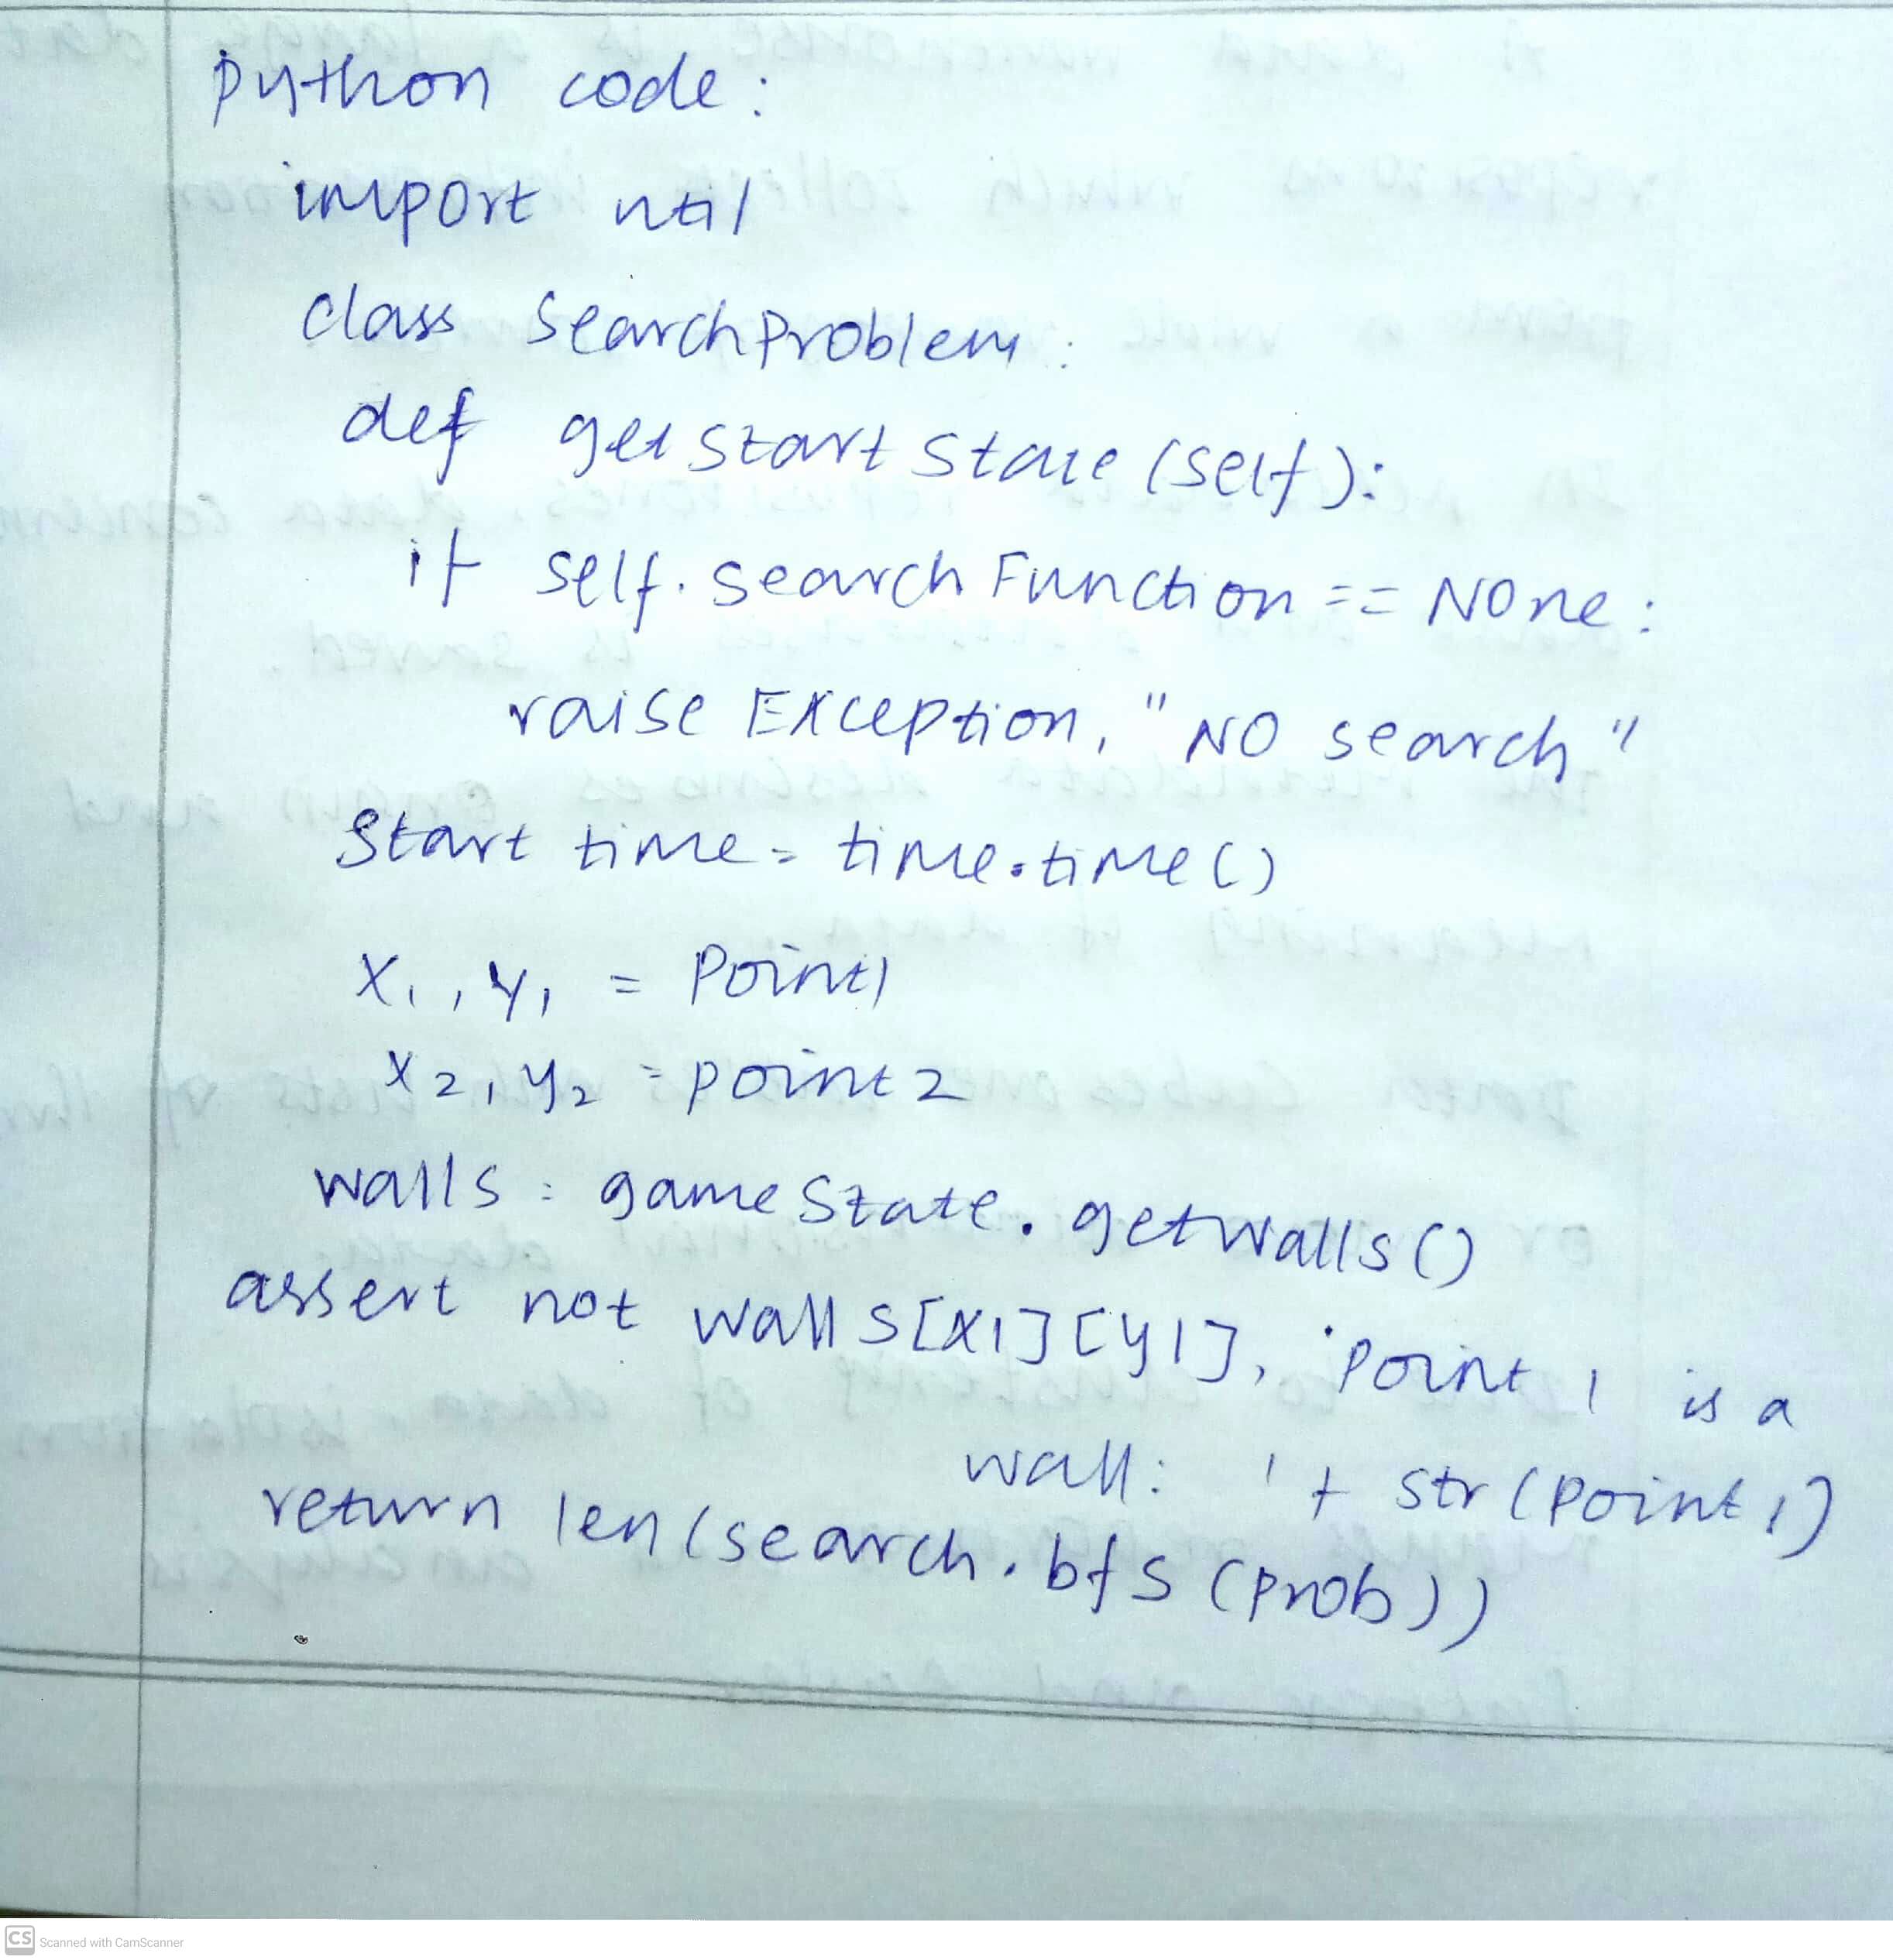 python code:
import util
class SearchProblem:
def getStartState(self):
if self.searchFunction == None:
raise Exception, "NO search"
Start time = time.time()
x1, y1 = Point1
x2, y2 = point2
walls = gameState.getWalls()
assert not walls[x1][y1], 'point 1 is a
wall: ' + str(point1)
return len(search.bfs(prob))
CS Scanned with CamScanner